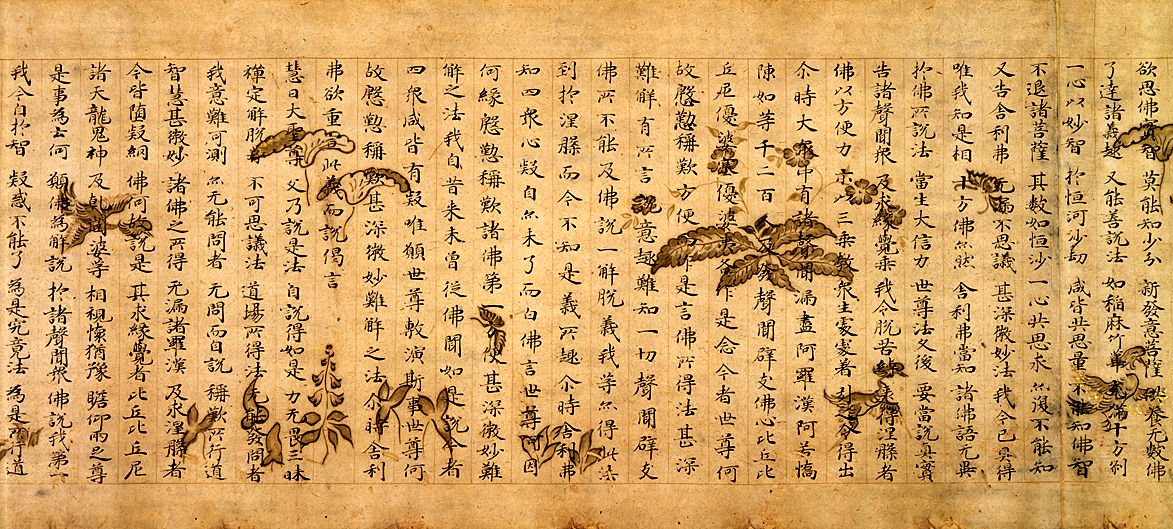 欲思佛實智 莫能知少分 新發意菩薩 供養无數佛
了達諸義趣 又能善說法 如稻麻竹葦 充滿十方刹
一心以妙智 於恒河沙劫 咸皆共思量 不能知佛智
不退諸菩薩 其數如恒沙 一心共思求 亦復不能知
又告舍利弗 无漏不思議 甚深微妙法 我今已具得
唯我知是相 十方佛亦然 舍利弗當知 諸佛語无異
於佛所說法 當生大信力 世尊法久後 要當說真實
告諸聲聞衆 及求緣覺乘 我令脫苦縛 逮得涅槃者
佛以方便力 示以三乘教 衆生處處著 引之令得出
尒時大衆中有諸聲聞漏盡阿羅漢阿若憍
陳如等千二百人及發聲聞辟支佛心比丘比
丘尼優婆塞優婆夷各作是念今者世尊何
故慇懃稱歎方便而作是言佛所得法甚深
難解有所言說意趣難知一切聲聞辟支
佛所不能及佛說一解脫義我等亦得此法
到於涅槃而今不知是義所趣尒時舍利弗
知四衆心疑自亦未了而白佛言世尊何因
何緣慇懃稱歎諸佛第一方便甚深微妙難
解之法我自昔來未曾從佛聞如是說今者
四衆咸皆有疑唯願世尊敷演斯事世尊何
故慇懃稱歎甚深微妙難解之法尒時舍利
弗欲重宣此義而說偈言
慧日大聖尊 久乃說是法 自說得如是 力无畏三昧
禪定解脫等 不可思議法 道場所得法 无能發問者
我意難可測 亦无能問者 无問而自說 稱歎所行道
智慧甚微妙 諸佛之所得 无漏諸羅漢 及求涅槃者
今皆墮疑網 佛何故說是 其求緣覺者 比丘比丘尼
諸天龍鬼神 及乾闥婆等 相視懷猶豫 瞻仰兩足尊
是事為云何 願佛為解說 於諸聲聞衆 佛說我第一
我今自於智 疑惑不能了 為是究竟法 為是所行道